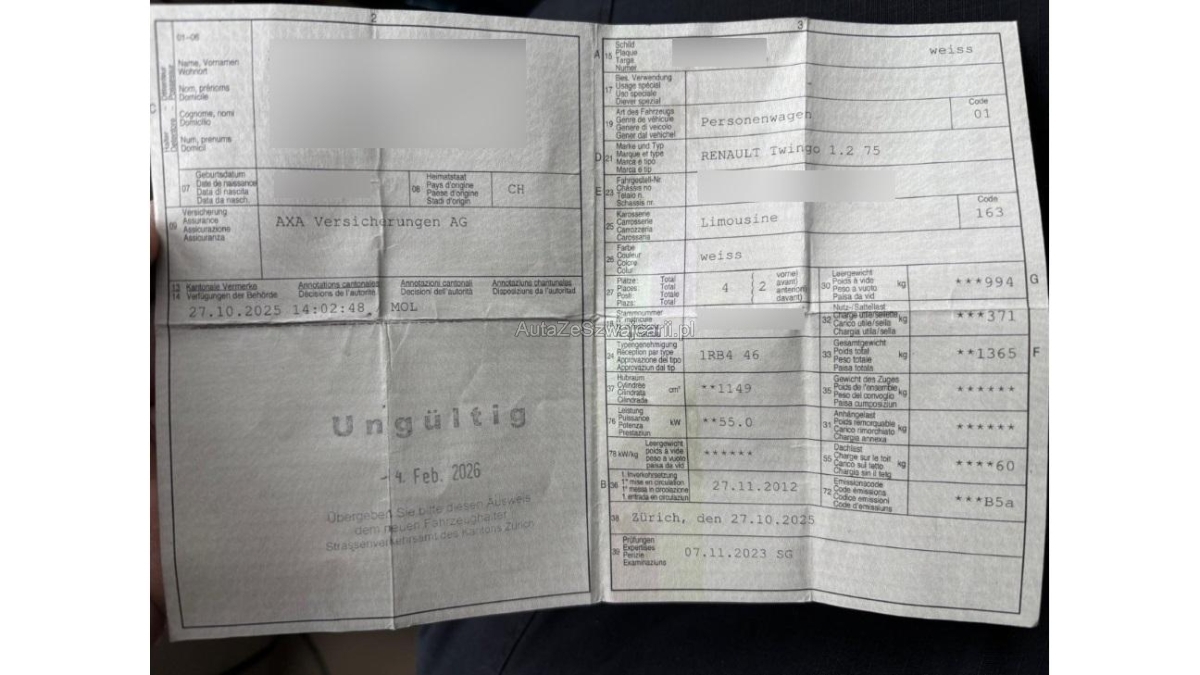 2
01-06
Name, Vornamen
Wohnort
Nom, prénoms
Domicile
Cognome, nomi
Domicilio
Num, prénums
Domicil
C
07
Geburtsdatum
Date de naissance
Data di nascita
Data da nasch.
08
Heimatstaat
Pays d'origine
Paese d'origine
Stadi d'origin
CH
09
Versicherung
Assurance
Assicurazione
Assicuranza
AXA Versicherungen AG
13
14
Kantonale Vermerke
Verfügungen der Behörde
Annotations cantonales
Décisions de l'autorité
Annotazioni cantonali
Decisioni dell'autorità
Annotaziuns chantunalas
Disposiziuns da l'autoritad
27.10.2025 14:02:48, MOL
Ungültig
- 4. Feb. 2026
Übergeben Sie bitte diesen Ausweis
dem neuen Fahrzeughalter
Strassenverkehrsamt des Kantons Zürich
3
A
15
Schild
Plaque
Targa
Numer
weiss
17
Bes. Verwendung
Usage spécial
Uso speciale
Diever spezial
19
Art des Fahrzeugs
Genre de véhicule
Genere di veicolo
Gener dal vehichel
Personenwagen
Code
01
D
21
Marke und Typ
Marque et type
Marca e tipo
Marca e tip
RENAULT Twingo 1.2 75
E
23
Fahrgestell-Nr
Châssis no
Telaio n.
Schassis nr.
25
Karosserie
Carrosserie
Carrozzeria
Carossaria
Limousine
Code
163
26
Farbe
Couleur
Colore
Colur
weiss
27
Plätze: Total
Places: Total
Posti: Totale
Plazs: Total
4
2
vorne)
avant)
anteriori)
davant)
30
Leergewicht
Poids à vide
Peso a vuoto
Paisa da vid
kg
***994
G
Stammnummer
N° matricule
32
Nutz-/Sattellast
Charge utile/sellette
Carico utile/sella
Chargia utila/sella
kg
***371
AutaZeSzwajcarii.pl
24
Typengenehmigung
Réception par type
Approvazione del tipo
Approvaziun dal tip
1RB4 46
33
Gesamtgewicht
Poids total
Peso totale
Paisa totala
kg
**1365
F
37
Hubraum
Cylindrée
Cilindrata
Cilindrada
cm³
**1149
35
Gewicht des Zuges
Poids de l'ensemble
Peso del convoglio
Paisa cumposiziun
kg
******
76
Leistung
Puissance
Potenza
Prestaziun
kW
**55.0
31
Anhängelast
Poids remorquable
Carico rimorchiato
Chargia annexa
kg
******
78 kW/kg
Leergewicht
poids à vide
peso a vuoto
paisa da vid
******
55
Dachlast
Charge sur le toit
Carico sul tetto
Chargia sin il tetg
kg
****60
B
36
1. Inverkehrsetzung
1re mise en circulation
1a messa in circolazione
1. entrada en circulaziun
27.11.2012
72
Emissionscode
Code émissions
Codice emissioni
Code d'emissiuns
***B5a
38
Zürich, den 27.10.2025
39
Prüfungen
Expertises
Perizie
Examinaziuns
07.11.2023 SG